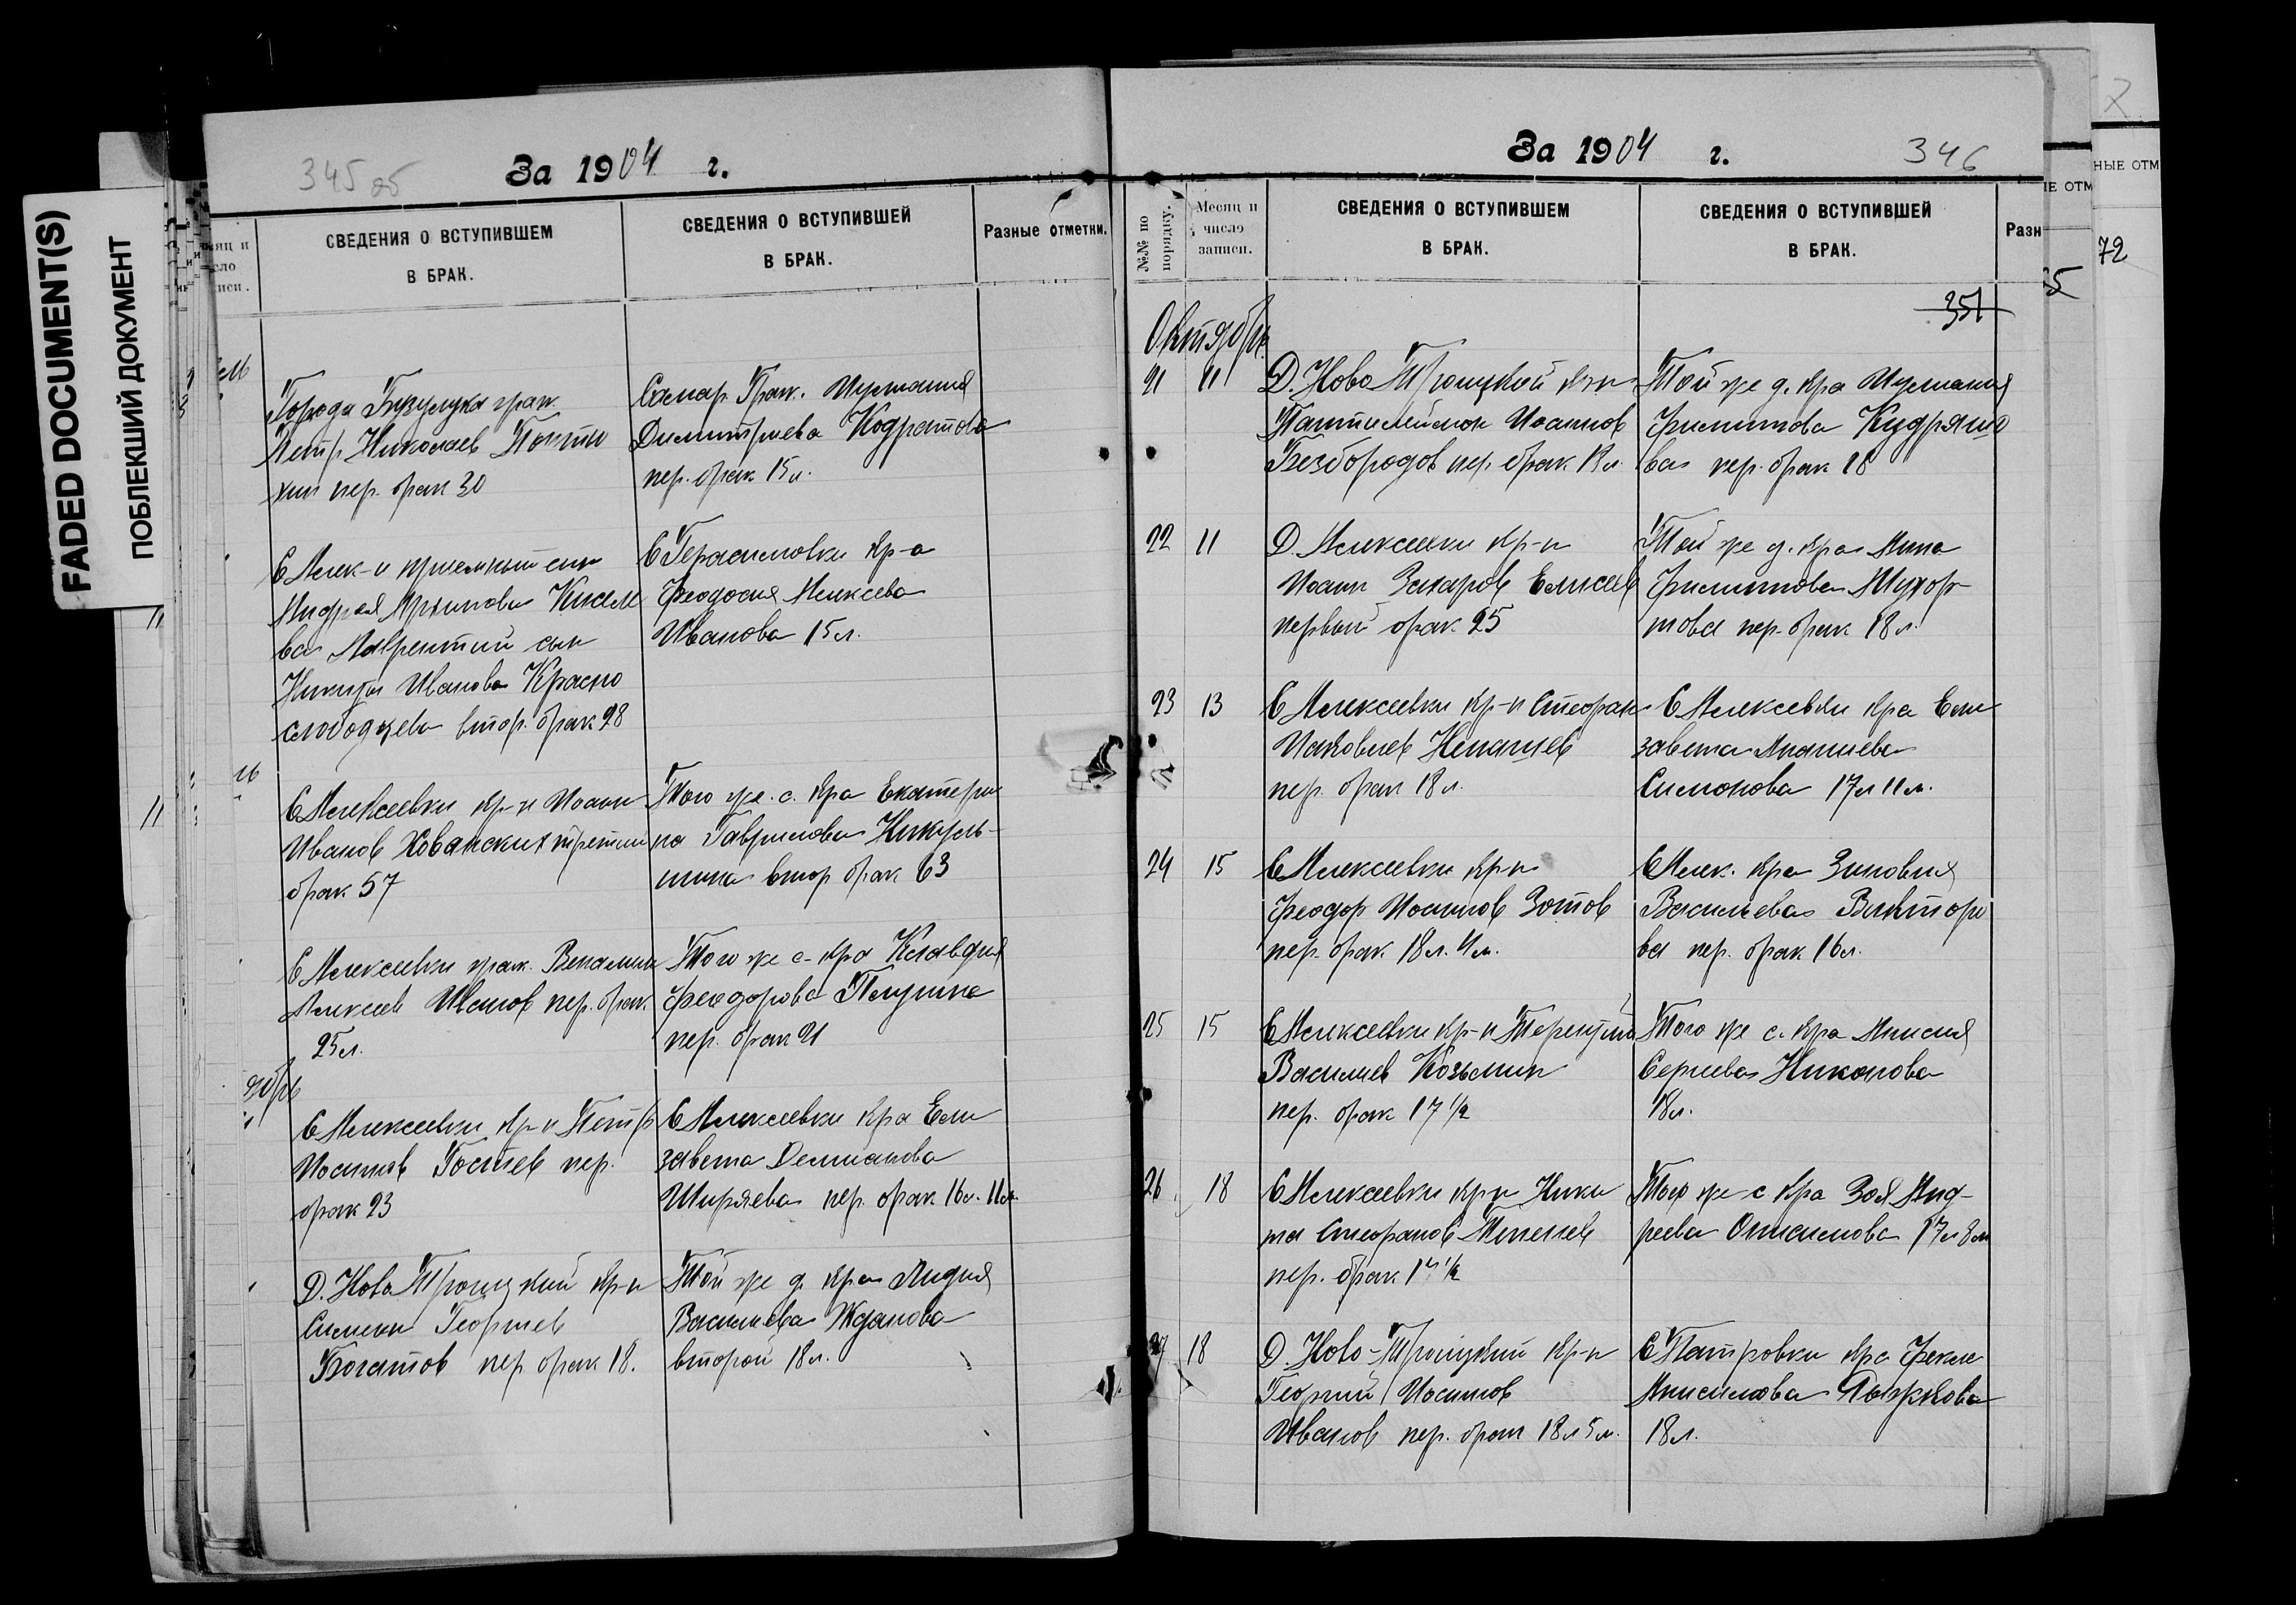 FADED DOCUMENT(S)
ПОБЛЕКШИЙ ДОКУМЕНТ
345 об
За 1904 г.
СВЕДЕНИЯ О ВСТУПИВШЕМ
В БРАК.
СВЕДЕНИЯ О ВСТУПИВШЕЙ
В БРАК.
Разные отметки.
Города Бузулука граж.
Петр Николаев
хин пер. брак 30
Самар. Граж. Иулиания
Димитриева Кодратова
пер. брак 15 л.
С Алек-и приемный сын
Андрея Архипова Киселе
ва Лаврентий сын
Никиты Иванова Красно
слободцева втор. брак 28
С Герасимовки кр-а
Феодосия Алексеева
Иванова 15 л.
С Алексеевки кр-н Иоанн
Иванов Хованских третий
брак 57
Того же с. кра Екатери
на Гаврилова Никуль-
шина втор брак 63
С Алексеевки граж. Вениамин
Алексеев Иванов пер. брак
25 л.
Того же с- кра Клавдия
Феодорова
пер. брак 21
С Алексеевки кр-н Петр
Иоаннов Гостев пер.
брак 23
С Алексеевки кра Ели
завета Демианова
Ширяева пер. брак 16 л. 11 м.
Д. Ново Троицкий кр-н
Симеон Георгиев
Богатов пер брак 18.
Той же д. кра Лидия
Василиева Жданова
второй 18 л.
За 1904 г.
346
№№ по порядку.
Месяц и число записи.
СВЕДЕНИЯ О ВСТУПИВШЕМ
В БРАК.
СВЕДЕНИЯ О ВСТУПИВШЕЙ
В БРАК.
Разн
351
Октябрь
21 11 Д. Ново Троицкой кр-н
Пантилеймон Иоаннов
Безбородов пер. брак 18 л.
Той же д. кра Иулиания
Филиппова Кудряшо
ва пер. брак 18
22 11 Д. Алексеевки кр-н
Иоанн Захаров Елисеев
первый брак 25
Той же д. кра Анна
Филиппова Мухор-
това пер. брак 18 л.
23 13 С Алексеевки кр-н Стефан
Иаковлев Ненашев
пер. брак 18 л.
С Алексеевки кра Ели
завета Ананиева
Симонова 17 л 11 м.
24 15 С Алексеевки кр-н
Феодор Иоаннов Зотов
пер. брак 18 л. 4 м.
С Алек. кра Зиновия
Василиева Викторо
ва пер. брак 16 л.
25 15 С Алексеевки кр-н Терентий
Василиев Козьмин
пер. брак 17 1/2
Того же с. кра Анисия
Сергиева Никонова
18 л.
26 18 С Алексеевки кр-н Ники
та Стефанов
пер. брак 17 1/2
Того же с кра Зоя Анд-
реева Онисимова 17 л 8 м
27 18 Д. Ново-Троицкий кр-н
Георгий Иоаннов
Иванов пер. брак 18 л 5 м.
С Патровки кра Фекла
Анисимова
18 л.
НЫЕ ОТМ
ІЕ ОТМ
72